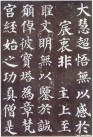 大慧超悟無以感於
宸衷非主上至
聖文明無以鑒於誠
願倬彼寶塔為章梵
宮經始之功真僧是